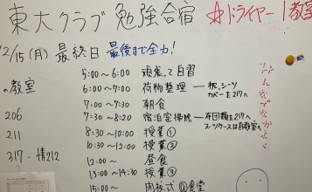 東大クラブ勉強合宿 ☆ドライヤー1教室
2/15(月) 最終日 最後まで全力!
5:00〜6:00 頑張って自習
の教室 6:00〜7:00 荷物整理 ― 枕、シーツ カバーを217へ
7:00〜7:30 朝食
206 7:30〜8:20 宿泊室掃除 ― 布団類を217へ
211 8:30〜10:00 授業①
10:30〜12:00 授業②
317・情212 12:00〜 昼食
13:00〜14:30 授業③
15:00〜 閉校式 @食堂